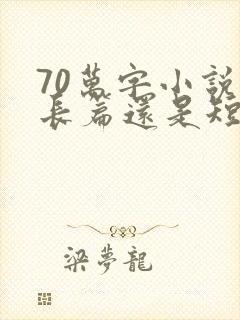 70萬字小說
長篇還是短
梁夢龍